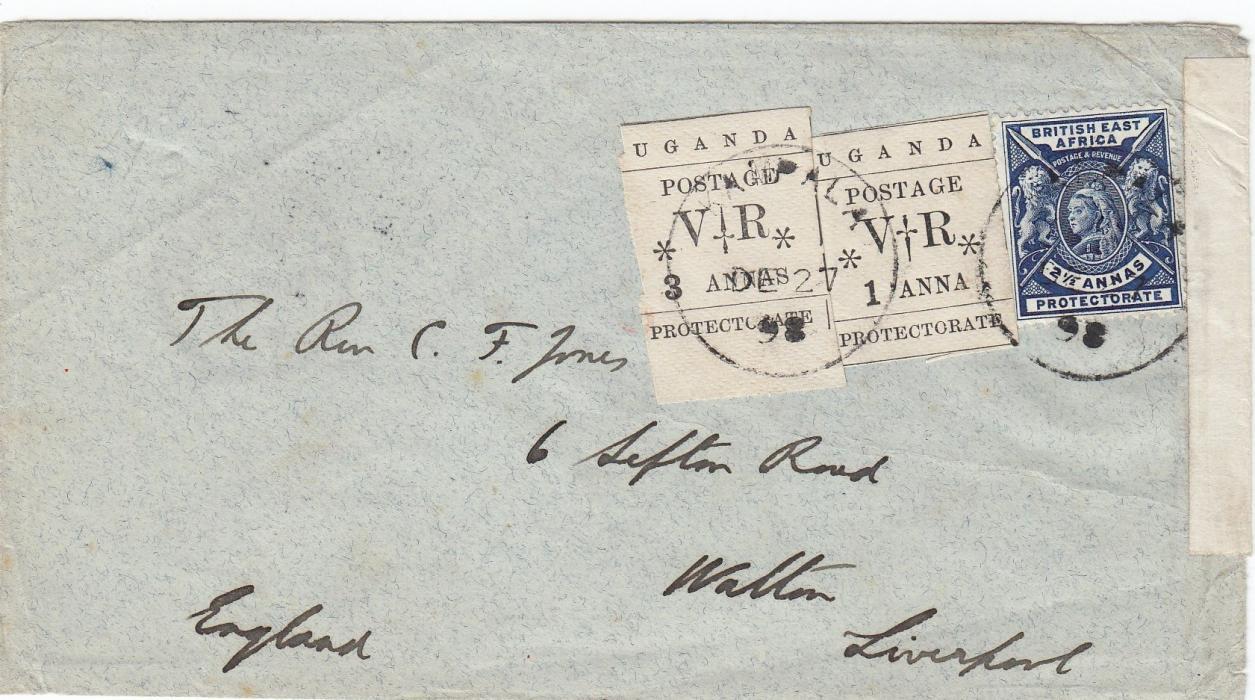 UGANDA
POSTAGE
V R
3 ANNAS
PROTECTORATE
UGANDA
POSTAGE
V R
1 ANNA
PROTECTORATE
BRITISH EAST
AFRICA
POSTAGE & REVENUE
2½ ANNAS
PROTECTORATE
DE 27
98
98
The Rev C. F. Jones
6 Sefton Road
Walton
Liverpool
England